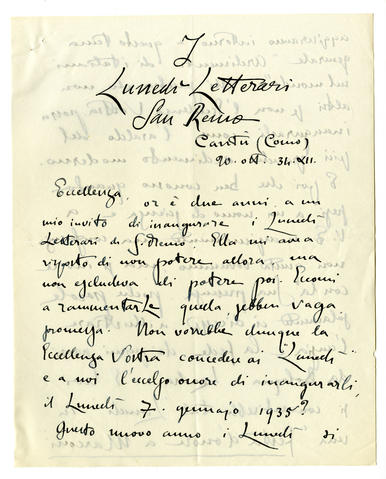 I
Lunedì Letterari
San Remo
Cantù (Como)
20. ott. 34. XII.
Eccellenza,
or è due anni, a un
mio invito di inaugurare i Lunedì
Letterari di S. Remo. Ella mi aveva
risposto di non potere allora, ma
non escludeva di potere poi. Eccomi
a rammentarLe quella, sebben vaga
promessa. Non vorrebbe dunque la
Eccellenza Vostra concedere ai "Lunedì"
e a noi l'eccelso onore di inaugurarli,
il Lunedì 7. gennajo 1935?
Questo nuovo anno i Lunedì si